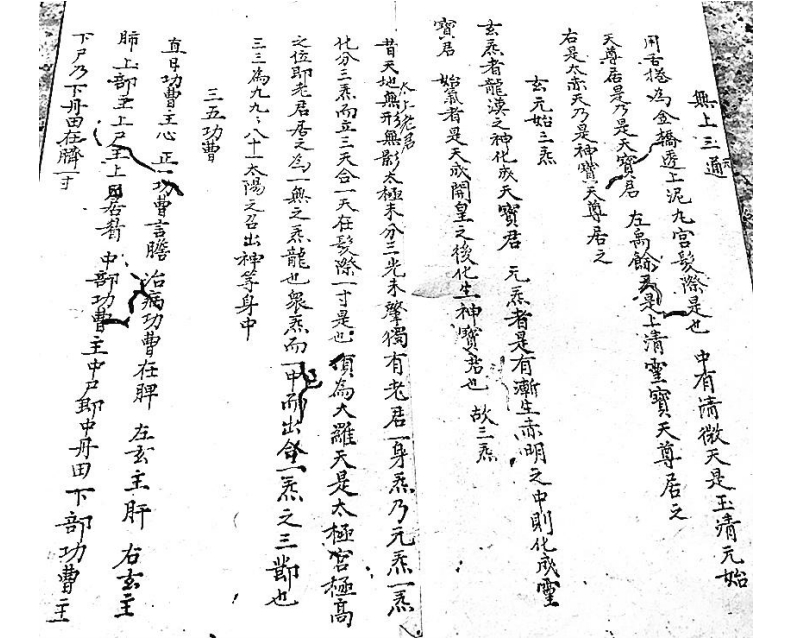 無上三通
用舌捲為金橋透上泥九宮髮際是也　中有清微天是玉清元始
天尊居是乃是天寶君　左禹餘天是上清靈寶天尊居之
右是太赤天乃是神寶天尊居之
玄元始三炁
玄炁者龍漢之神化成天寶君　元炁者是有漸生赤明之中則化成靈
寶君　始氣者是天成開皇之後化生神寶君也　故三炁
太上老君
昔天地無形無影太極未分三光未肇獨有老君一身炁乃元炁一炁
化分三炁而立三天合一天在髮際一寸是也　頂為大羅天是太極宮極高
之位即老君居之為一無之炁龍也眾炁而一中而出合一炁之三節也
三三為九九八十一太陽之召出神等身中
三五功曹
直日功曹主心　正一功曹言膽　治病功曹在脾　左玄主肝　右玄主
肺　上部主上尸主上居　中部功曹主中尸即中丹田　下部功曹主
下尸乃下丹田在臍一寸